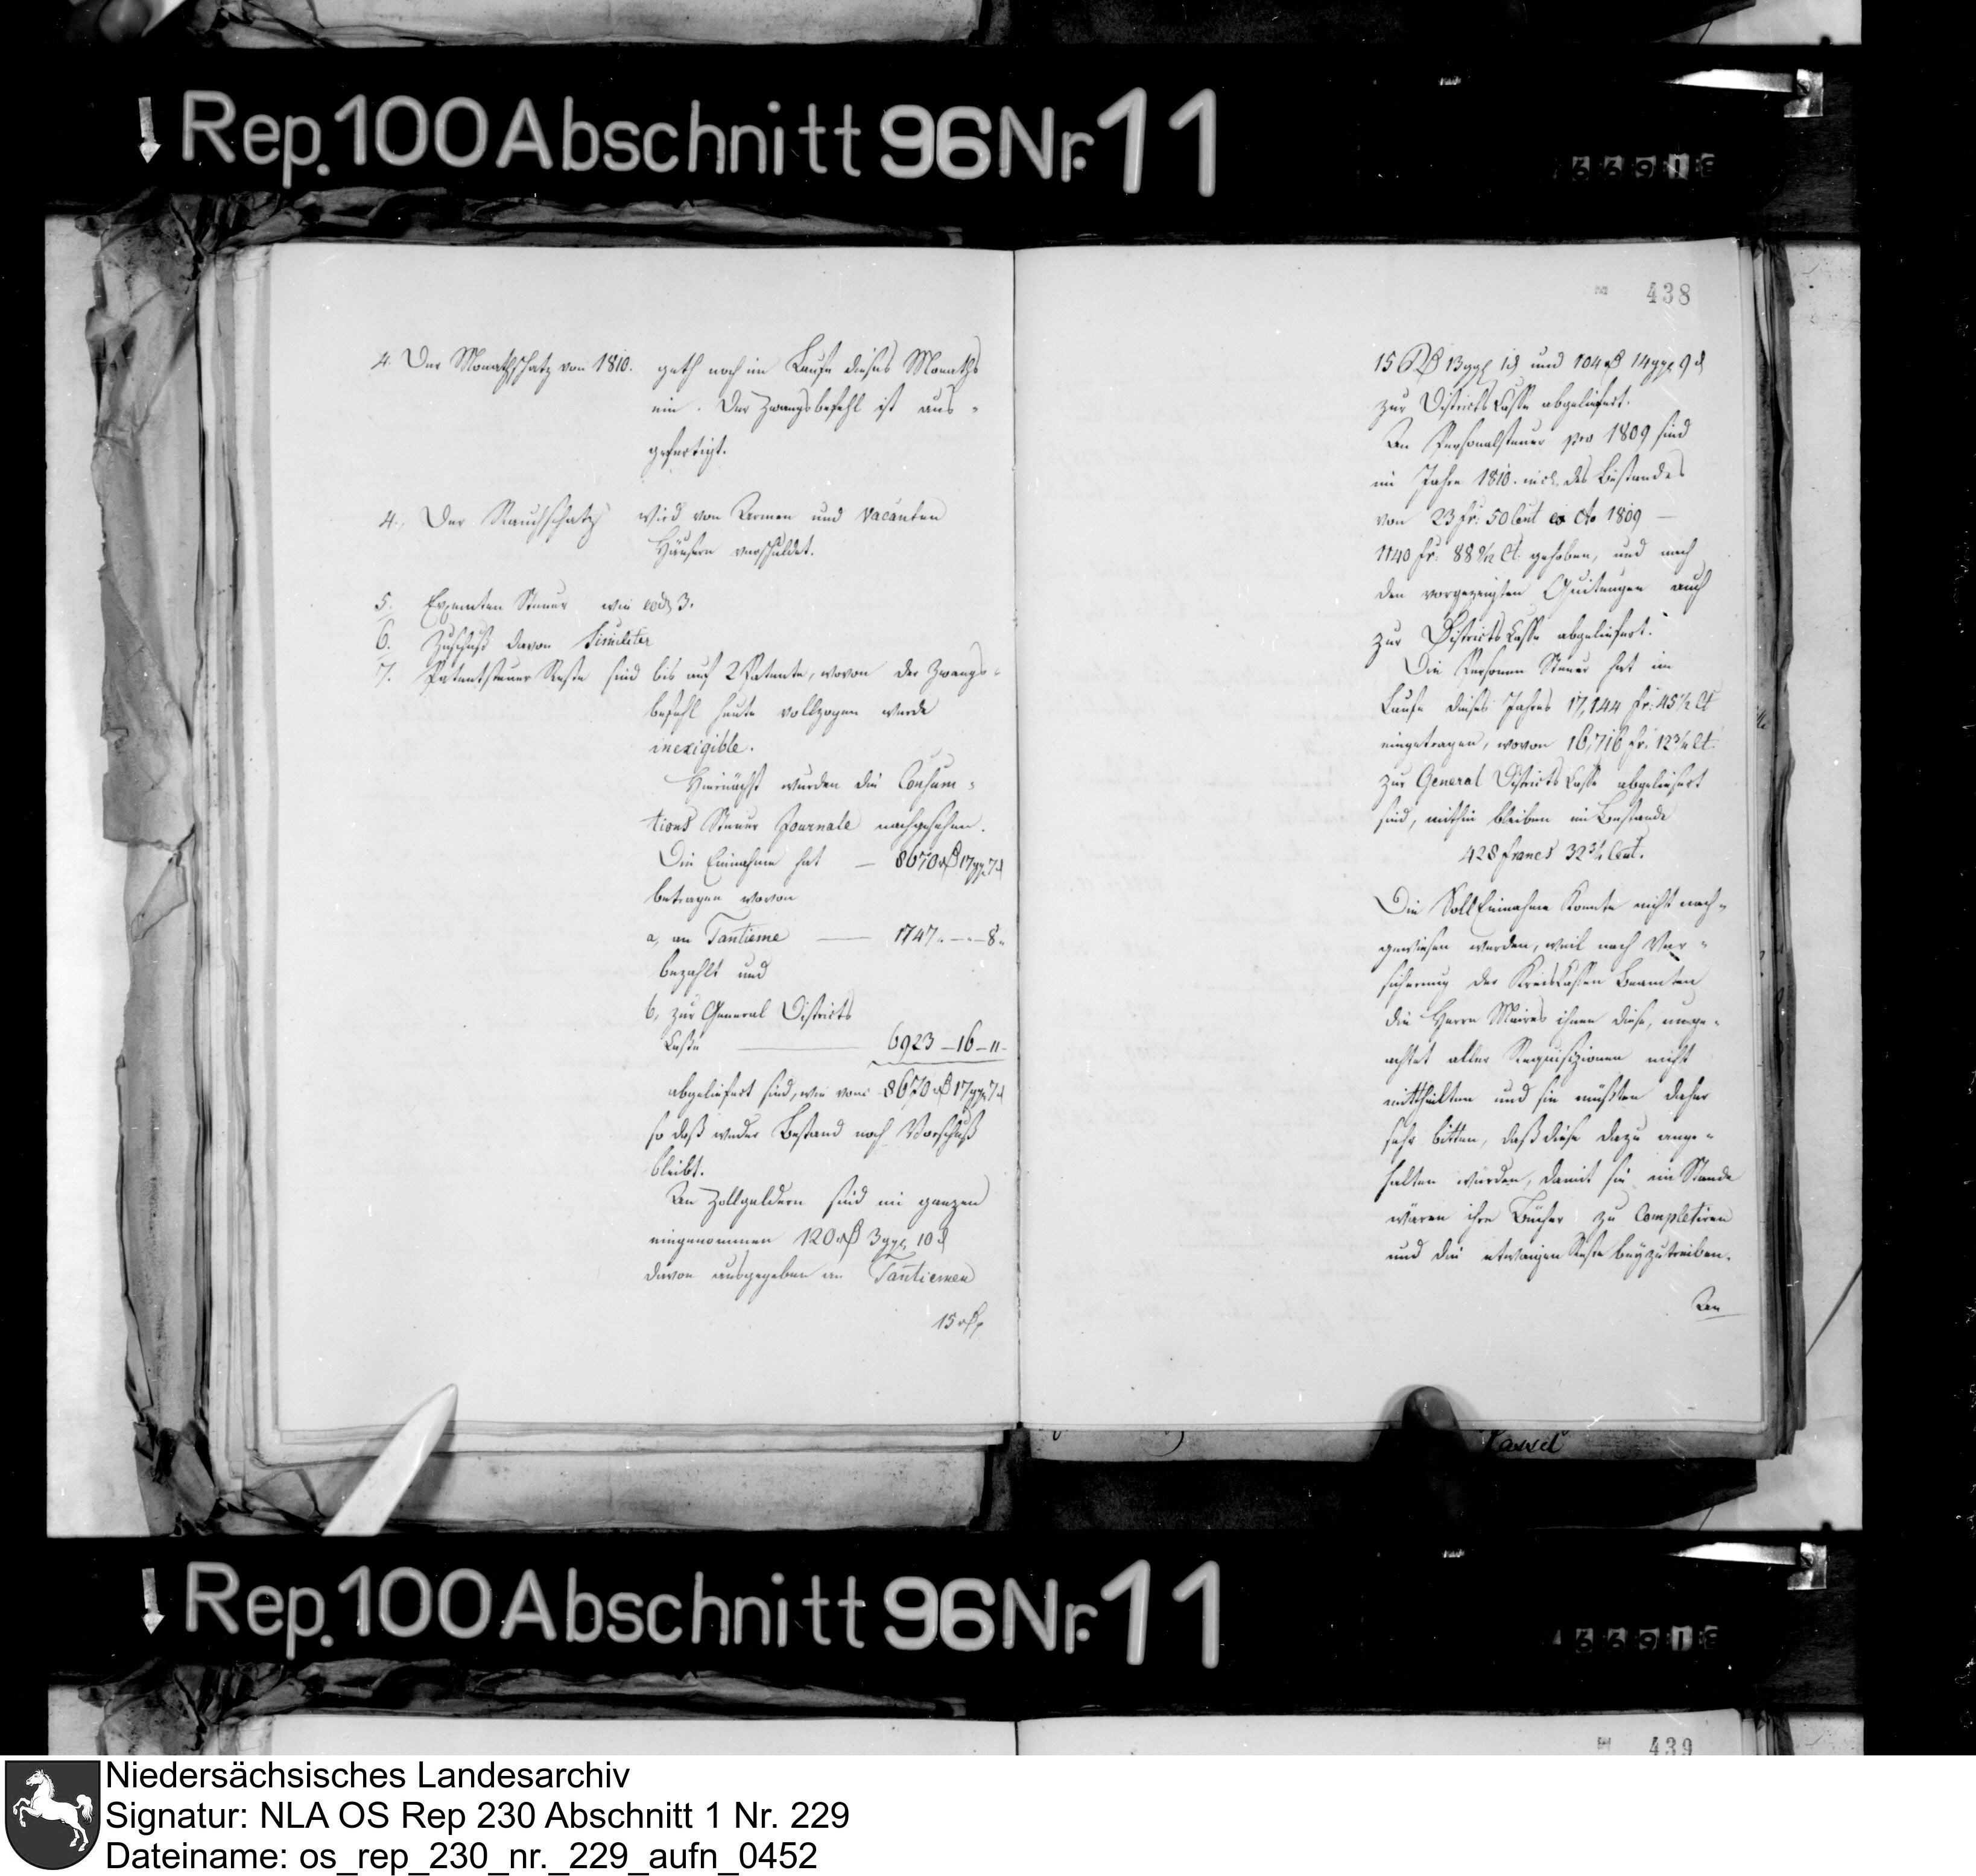 Rep. 100 Abschnitt 96 Nr. 11
66918
438
4. Der Monathschatz von 1810. geth noch im Laufe dieses Monaths
ein. Der Zwangsbefehl ist aus-
gefertigt.
4., Der Rauchschatz wird von Armen und vacanten
Häusern verschuldet.
5. Exemten Steuer wie ad 3.
6. Zuschuß davon Similiter
7. Patentsteuer Reste sind bis auf 2 Patente, wovon der Zwangs-
befehl heute vollzogen wurde
inexigible.
Hiernächst wurden die Consum-
tions Steuer Journale nachgesehen.
Die Einnahme hat — 8670 rß 17 ggr 7 d
betragen wovon
a, an Tantieme — 1747 „ — „ 8 „
bezahlt und
b, zur General Districts
Casse — 6923 – 16 – 11 –
abgeliefert sind, wie vor: 8670 rß 17 ggr 7 d
so daß weder Bestand noch Vorschuß
bleibt.
An Zollgeldern sind im ganzen
eingenommen 120 rß 3 ggr 10 d
davon ausgegeben an Tantiemen
15 rß
15 rß 13 ggr 1 d und 104 rß 14 ggr 9 d
zur Districts Casse abgeliefert.
An Personalsteuer pro 1809 sind
im Jahre 1810. incl. des Bestandes
von 23 fr: 50 Cent ex Ao 1809 —
1140 fr: 88 Ct. gehoben, und nach
den vorgezeigten Quitungen auch
zur Districts Casse abgeliefert.
Die Personen Steuer hat im
Laufe dieses Jahres 17,144 fr: 45 1/2 Ct
eingetragen, wovon 16,716 fr: 12 3/4 Ct.
zur General Districts Casse abgeliefert
sind, mithin bleiben im Bestande
428 francs 32 3/4 Cent.
Die Soll Einnahme konnte nicht nach-
gewiesen werden, weil nach Ver-
sicherung der KreisCassen Beamten
die Herrn Maires ihnen diese, unge-
achtet aller Requisizionen nicht
mittheilten und sie müßten daher
sehr bitten, daß diese dazu ange-
halten würden, damit sie im Stande
wären ihre Bücher zu completiren
und die etwaigen Reste beyzutreiben.
An
Rep. 100 Abschnitt 96 Nr. 11
66918
439
Niedersächsisches Landesarchiv
Signatur: NLA OS Rep 230 Abschnitt 1 Nr. 229
Dateiname: os_rep_230_nr._229_aufn_0452